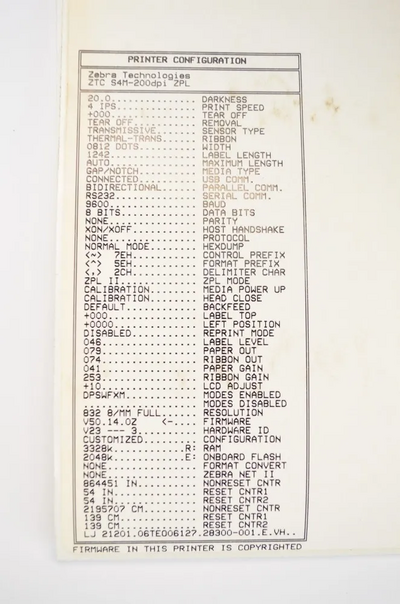 PRINTER CONFIGURATION
Zebra Technologies
ZTC S4M-200dpi ZPL
20.0.............. DARKNESS
4 IPS............. PRINT SPEED
+000.............. TEAR OFF
TEAR OFF.......... REMOVAL
TRANSMISSIVE...... SENSOR TYPE
THERMAL-TRANS..... RIBBON
0812 DOTS......... WIDTH
1242.............. LABEL LENGTH
AUTO.............. MAXIMUM LENGTH
GAP/NOTCH......... MEDIA TYPE
CONNECTED......... USB COMM.
BIDIRECTIONAL..... PARALLEL COMM.
RS232............. SERIAL COMM.
9600.............. BAUD
8 BITS............ DATA BITS
NONE.............. PARITY
XON/XOFF.......... HOST HANDSHAKE
NONE.............. PROTOCOL
NORMAL MODE....... HEXDUMP
<~> 7EH.......... CONTROL PREFIX
<^> 5EH.......... FORMAT PREFIX
<,> 2CH.......... DELIMITER CHAR
ZPL II............ ZPL MODE
CALIBRATION....... MEDIA POWER UP
CALIBRATION....... HEAD CLOSE
DEFAULT........... BACKFEED
+000.............. LABEL TOP
+0000............. LEFT POSITION
DISABLED.......... REPRINT MODE
046............... LABEL LEVEL
079............... PAPER OUT
074............... RIBBON OUT
041............... PAPER GAIN
253............... RIBBON GAIN
+10............... LCD ADJUST
DPSWFXM........... MODES ENABLED
.................. MODES DISABLED
832 8/MM FULL..... RESOLUTION
V50.14.0Z <-.... FIRMWARE
V23 --- 3......... HARDWARE ID
CUSTOMIZED........ CONFIGURATION
3328k............R: RAM
2048k............E: ONBOARD FLASH
NONE.............. FORMAT CONVERT
NONE.............. ZEBRA NET II
864451 IN......... NONRESET CNTR
54 IN............. RESET CNTR1
54 IN............. RESET CNTR2
2195707 CM........ NONRESET CNTR
139 CM............ RESET CNTR1
139 CM............ RESET CNTR2
LJ 21201.06TE006127.28300-001.E.VH..
FIRMWARE IN THIS PRINTER IS COPYRIGHTED